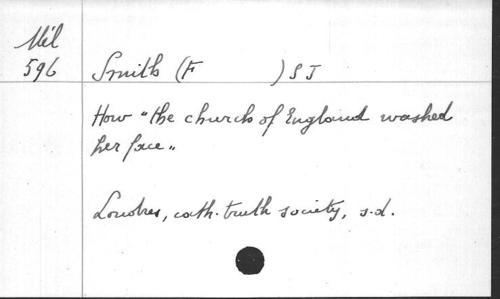 Mél
596
Smith (F        ) S J
How "the church of England washed
her face"
Londres, cath. truth society, s.d.